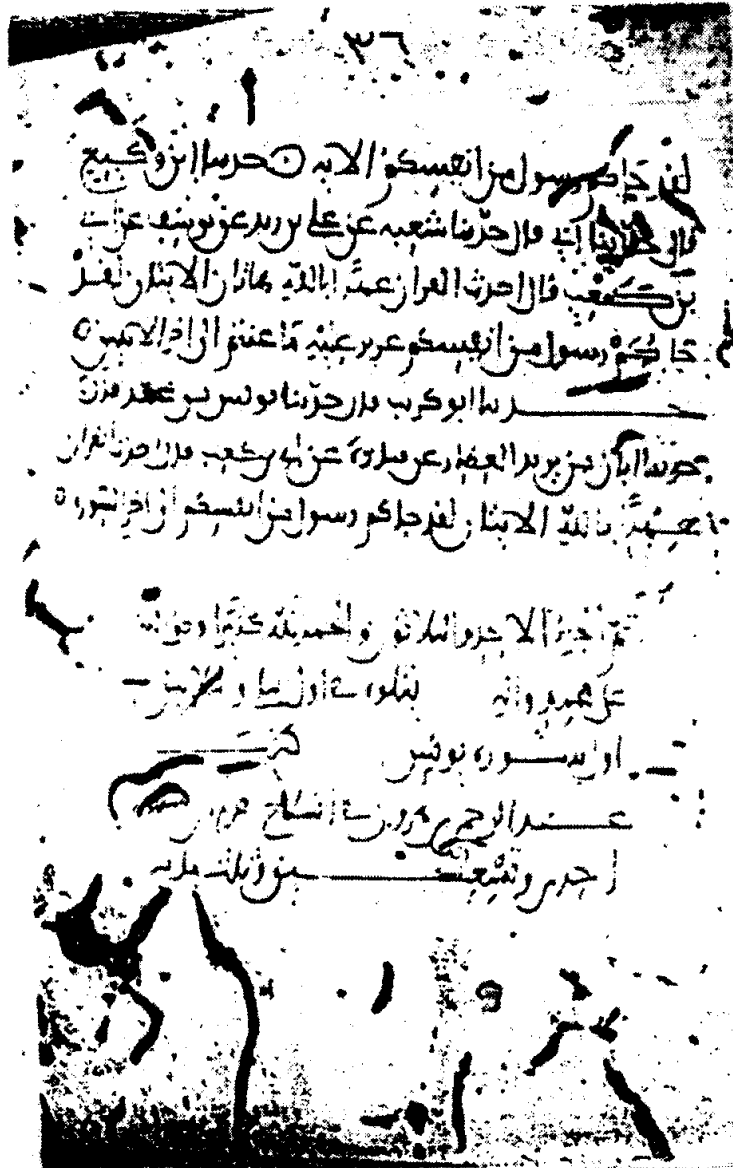 ٣٦
لقد جاكم رسول من انفسكم الايه حدثنا ابن وكيع
قال حدثنا ابي قال حدثنا شعبه عن علي بن زيد عن يوسف عن ابي
بن كعب قال احدث القران عهدا بالله هاتان الايتان لقد
جاكم رسول من انفسكم عزيز عليه ما عنتم الى اخر الايتين
حدثنا ابو كريب قال حدثنا يونس بن محمد قال
حدثنا ابان بن يزيد العطار عن قتاده عن ابي بن كعب قال احدث القران
عهدا بالله الايتان لقد جاكم رسول من انفسكم الى اخر السوره
تم الجزء الاحد والثلاثون والحمد لله كثيرا وصلى الله
على محمد واله يتلوه في اول
اول سوره يونس كتب
عبد الرحمن في انسلاخ
احدى وتسعين وثلث مايه